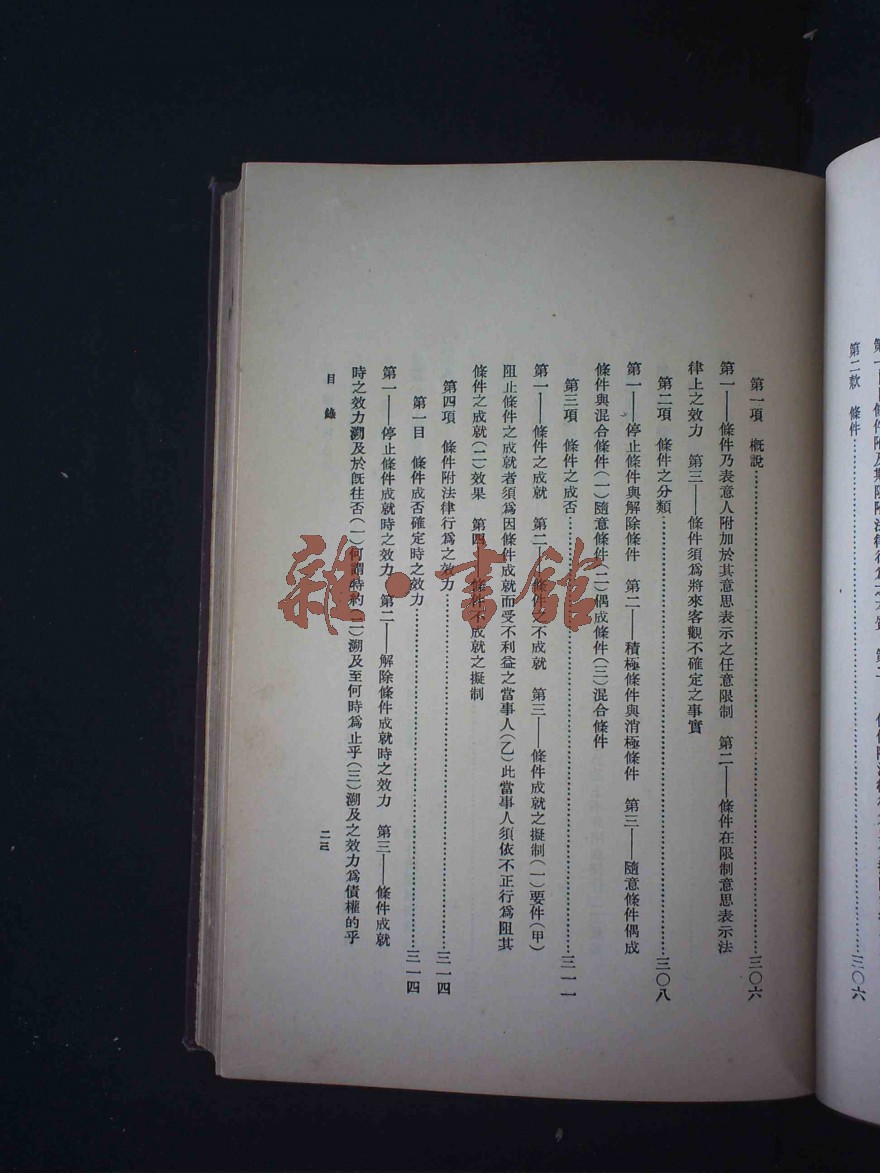 第二款　條件……三〇六
第一項　概說……三〇六
第一——條件乃表意人附加於其意思表示之任意限制　第二——條件在限制意思表示法
律上之效力　第三——條件須爲將來客觀不確定之事實
第二項　條件之分類……三〇八
第一——停止條件與解除條件　第二——積極條件與消極條件　第三——隨意條件偶成
條件與混合條件(一)隨意條件(二)偶成條件(三)混合條件
第三項　條件之成否……三一一
第一——條件之成就　第二——條件之不成就　第三——條件成就之擬制(一)要件(甲)
阻止條件之成就者須爲因條件成就而受不利益之當事人(乙)此當事人須依不正行爲阻其
條件之成就(二)效果　第四——條件不成就之擬制
第四項　條件附法律行爲之效力……三一四
第一目　條件成否確定時之效力……三一四
第一——停止條件成就時之效力　第二——解除條件成就時之效力　第三——條件成就
時之效力溯及於旣往否(一)何謂特約(二)溯及至何時爲止乎(三)溯及之效力爲債權的乎
目錄
二三
雜·書館